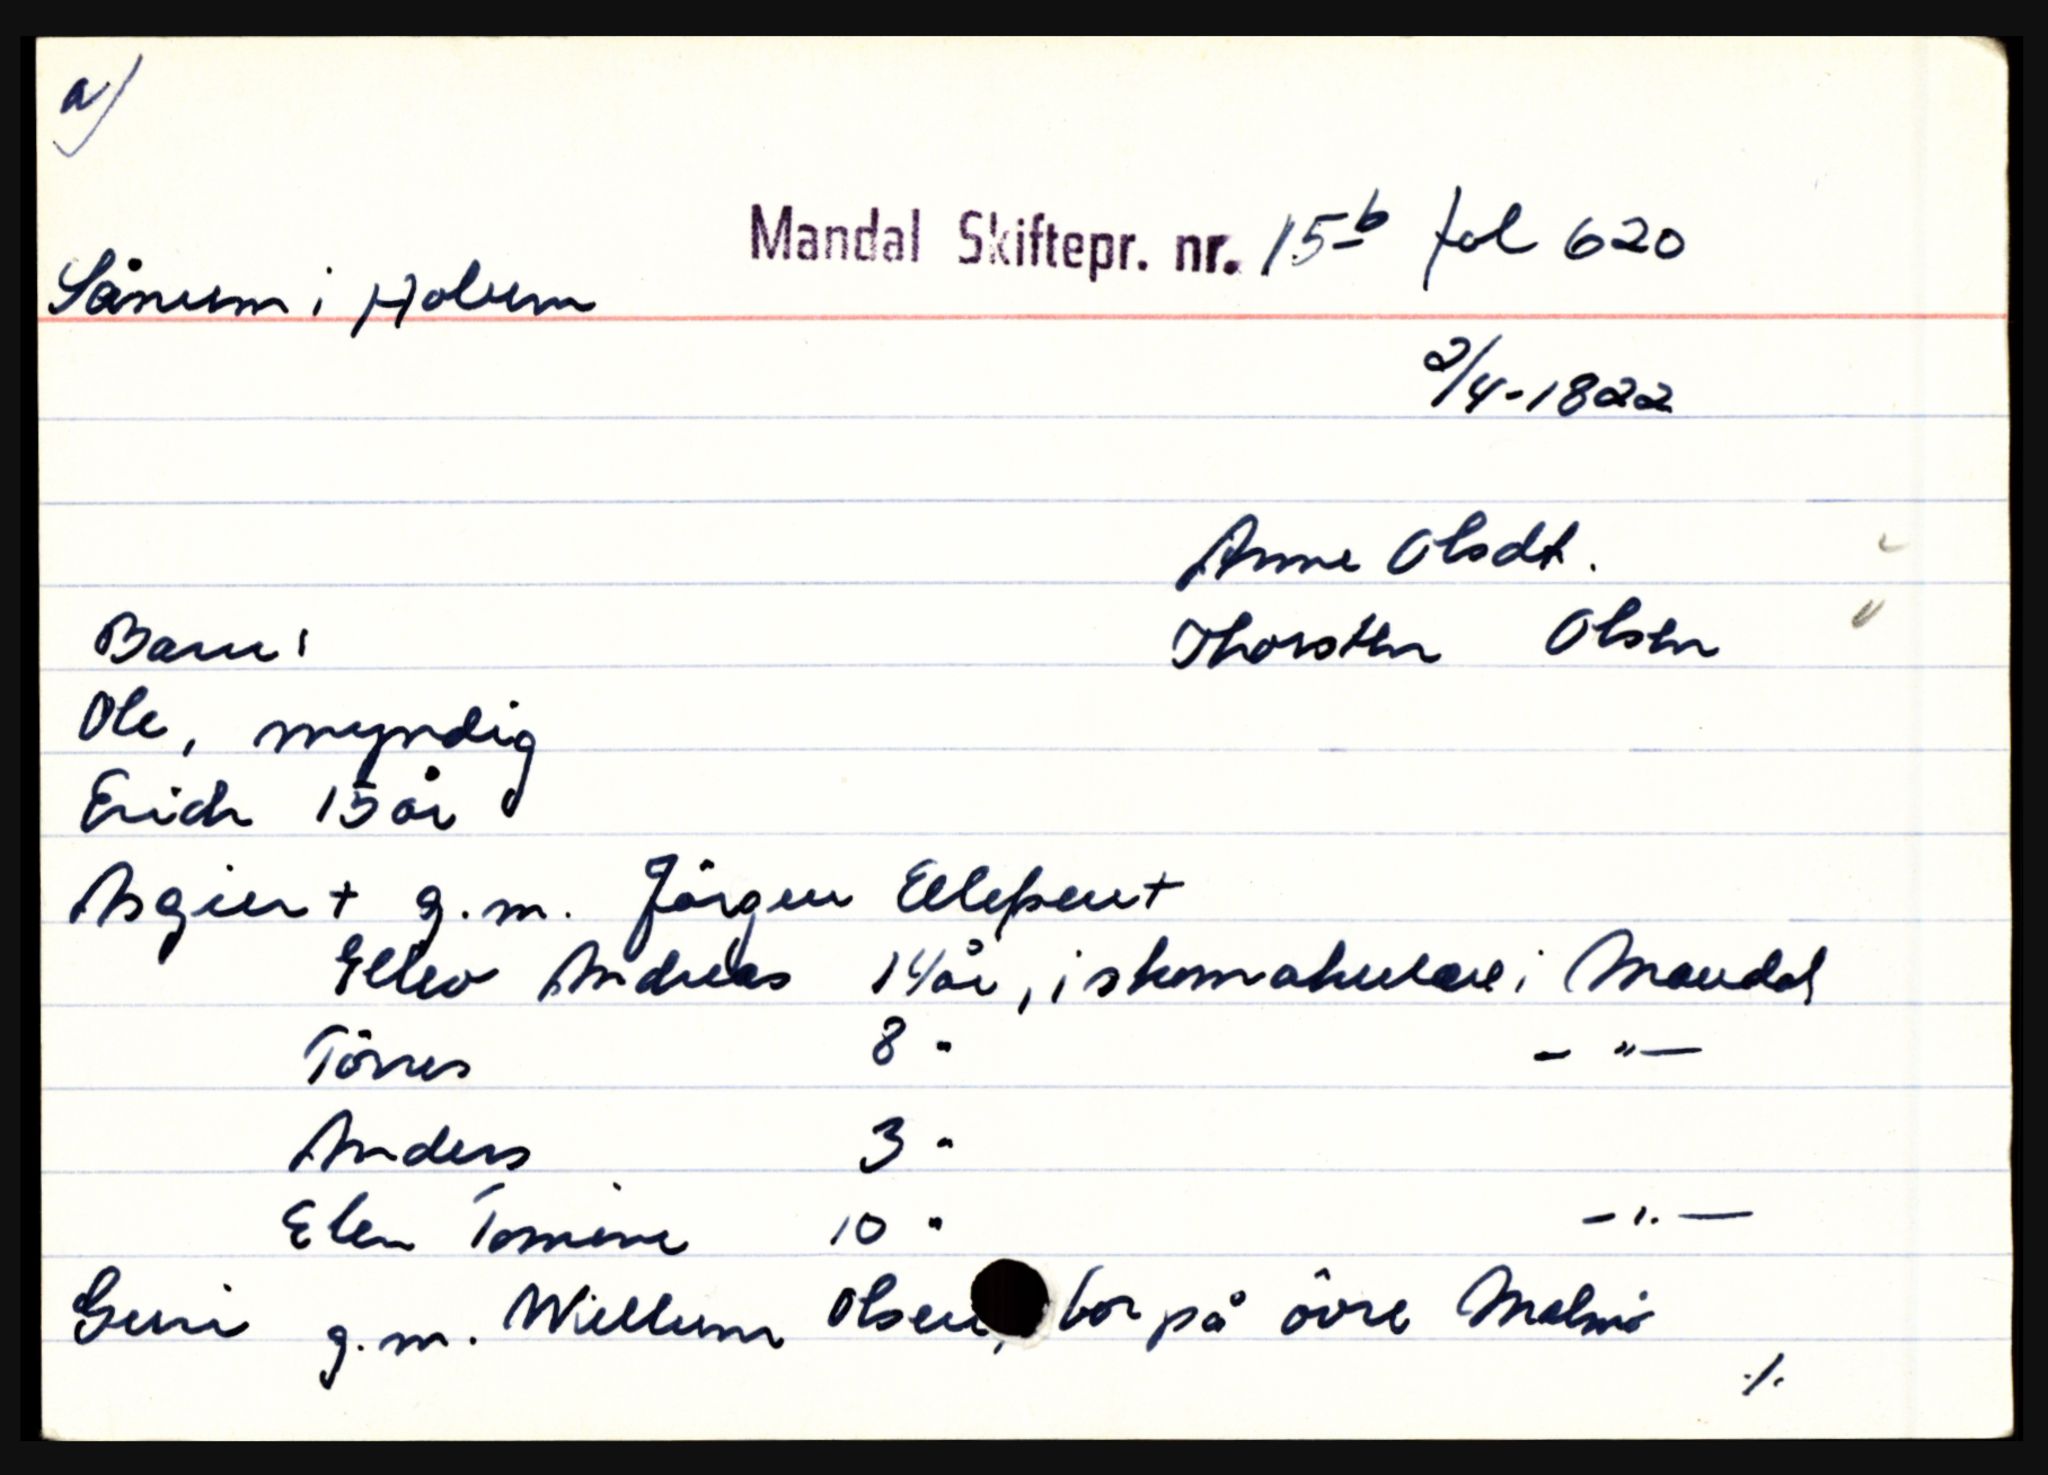 a)
Mandal Skiftepr. nr. 15b fol 620
Sånum i Holum
2/4-1822
Anne Olsdt.
Barn: Thorsten Olsen
Ole, myndig
Erich 15 år
Asgier + g.m. Jörgen Ellefsen +
Ellev Andreas 14 år, i skomakerlære i Mandal
Törres 8 " - " -
Anders 3 "
Elen Tomine 10 " - " -
Guri g.m. Willum Olsen, bor på övre Malmö
./.